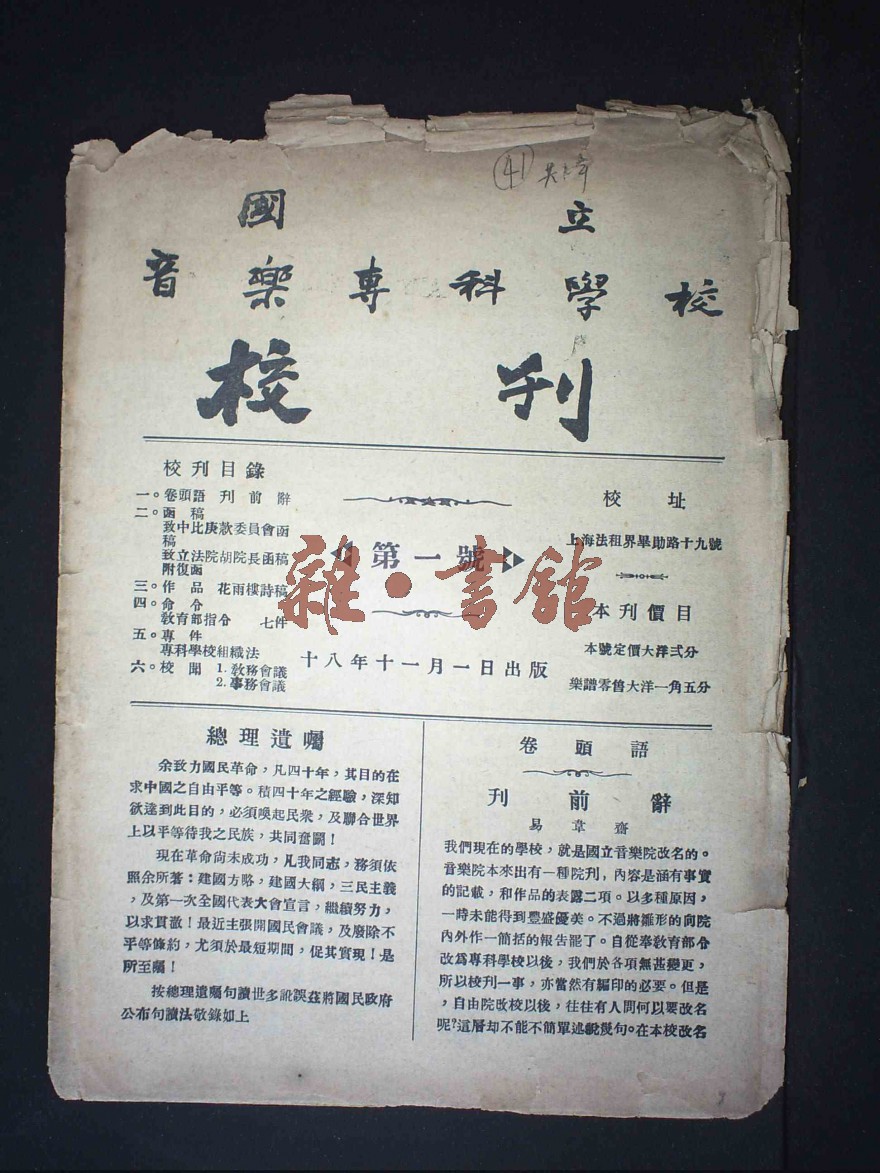 41
國立
音樂專科學校
校刊
校刊目錄
一。卷頭語 刊前辭
二。函稿
致中比庚款委員會函
稿
致立法院胡院長函稿
附復函
三。作品 花雨樓詩稿
四。命令
教育部指令 七件
五。專件
專科學校組織法
六。校聞 1.教務會議
2.事務會議
第一號
十八年十一月一日出版
校址
上海法租界畢勛路十九號
本刊價目
本號定價大洋弍分
樂譜零售大洋一角五分
雜·書館
總理遺囑
余致力國民革命，凡四十年，其目的在
求中國之自由平等。積四十年之經驗，深知
欲達到此目的，必須喚起民衆，及聯合世界
上以平等待我之民族，共同奮鬭！
現在革命尙未成功，凡我同志，務須依
照余所著：建國方略，建國大綱，三民主義
，及第一次全國代表大會宣言，繼續努力，
以求貫澈！最近主張開國民會議，及廢除不
平等條約，尤須於最短期間，促其實現！是
所至囑！
按總理遺囑句讀世多訛誤茲將國民政府
公布句讀法敬錄如上
卷頭語
刊前辭
易韋齋
我們現在的學校，就是國立音樂院改名的。
音樂院本來出有一種院刋，內容是涵有事實
的記載，和作品的表露二項。以多種原因，
一時未能得到豐盛優美。不過將雛形的向院
內外作一簡括的報告罷了。自從奉敎育部令
改爲專科學校以後，我們於各項無甚變更，
所以校刊一事，亦當然有編印的必要。但是
，自由院改校以後，往往有人問何以要改名
呢？這層却不能不簡單述説幾句。在本校改名